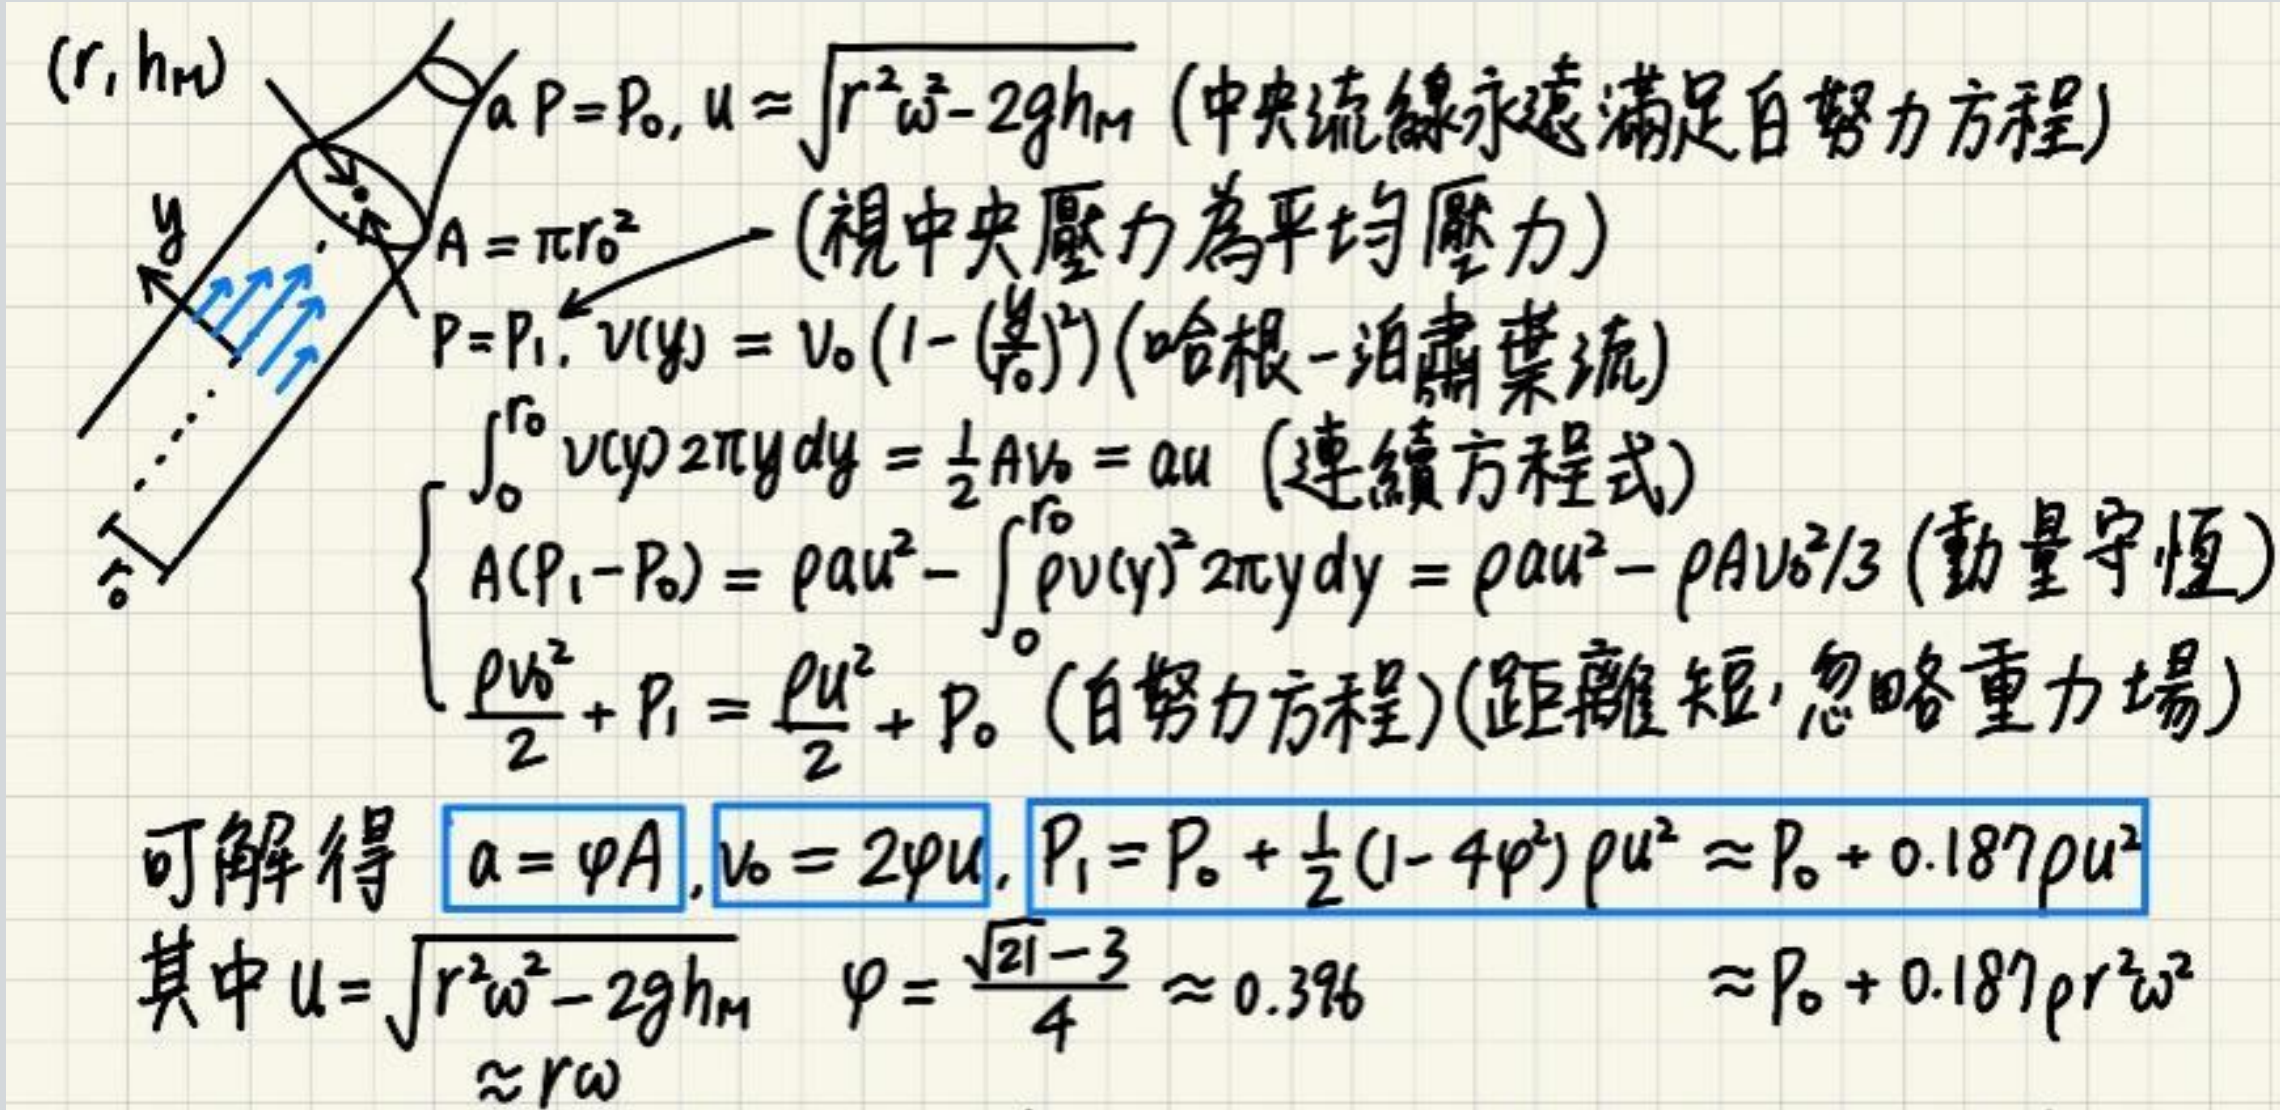 (r, hM)
a P = P₀, u ≈ √(r²ω² - 2ghM) (中央流線永遠滿足白努力方程)
y
A = πr₀² (視中央壓力為平均壓力)
P = P₁, v(y) = v₀(1 - (y/r₀)²) (哈根-泊肅葉流)
∫₀^r₀ v(y) 2πy dy = ½Av₀ = au (連續方程式)
A(P₁ - P₀) = ρau² - ∫₀^r₀ ρv(y)² 2πy dy = ρau² - ρAv₀²/3 (動量守恆)
r₀
ρv₀²/2 + P₁ = ρu²/2 + P₀ (白努力方程)(距離短,忽略重力場)
可解得 a = φA, v₀ = 2φu, P₁ = P₀ + ½(1 - 4φ²)ρu² ≈ P₀ + 0.187ρu²
其中 u = √(r²ω² - 2ghM) φ = (√21 - 3)/4 ≈ 0.396 ≈ P₀ + 0.187ρr²ω²
≈ rω